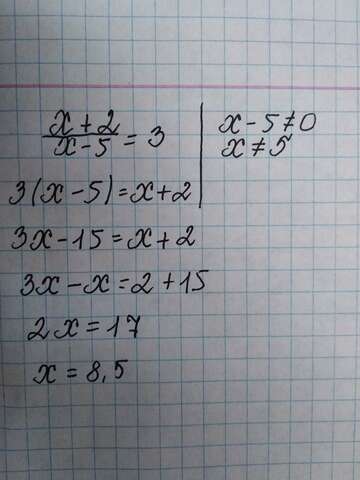 x+2/x-5 = 3
x-5≠0
x≠5
3(x-5)=x+2
3x-15=x+2
3x-x=2+15
2x=17
x=8,5